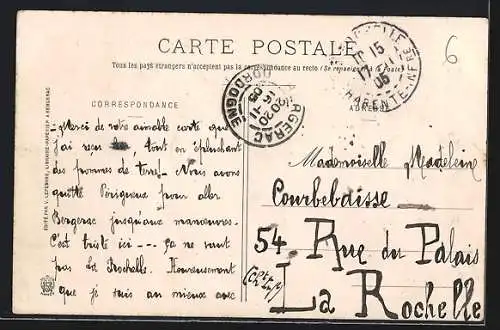 CARTE POSTALE
Tous les pays étrangers n'acceptent pas la correspondance au recto (Se renseigner à la Poste)
CORRESPONDANCE
ADRESSE
6
LA ROCHELLE
15
17 -11
05
CHARENTE-INFRE
BERGERAC
20 20
16 -11
05
DORDOGNE
Merci de votre aimable carte que
j'ai reçu hier, tout en épluchant
des pommes de terre. Nous avons
quitté Périgueux pour aller
Bergerac jusqu'aux manœuvres.
C'est triste ici --- ça ne vaut
pas La Rochelle. Heureusement
que je suis au mieux avec
Mademoiselle Madeleine
Courbebdaisse
54 Rue du Palais
La Rochelle
ÉDITÉ PAR V. LEFEBVRE, LIBRAIRE-PAPETIER A BERGERAC